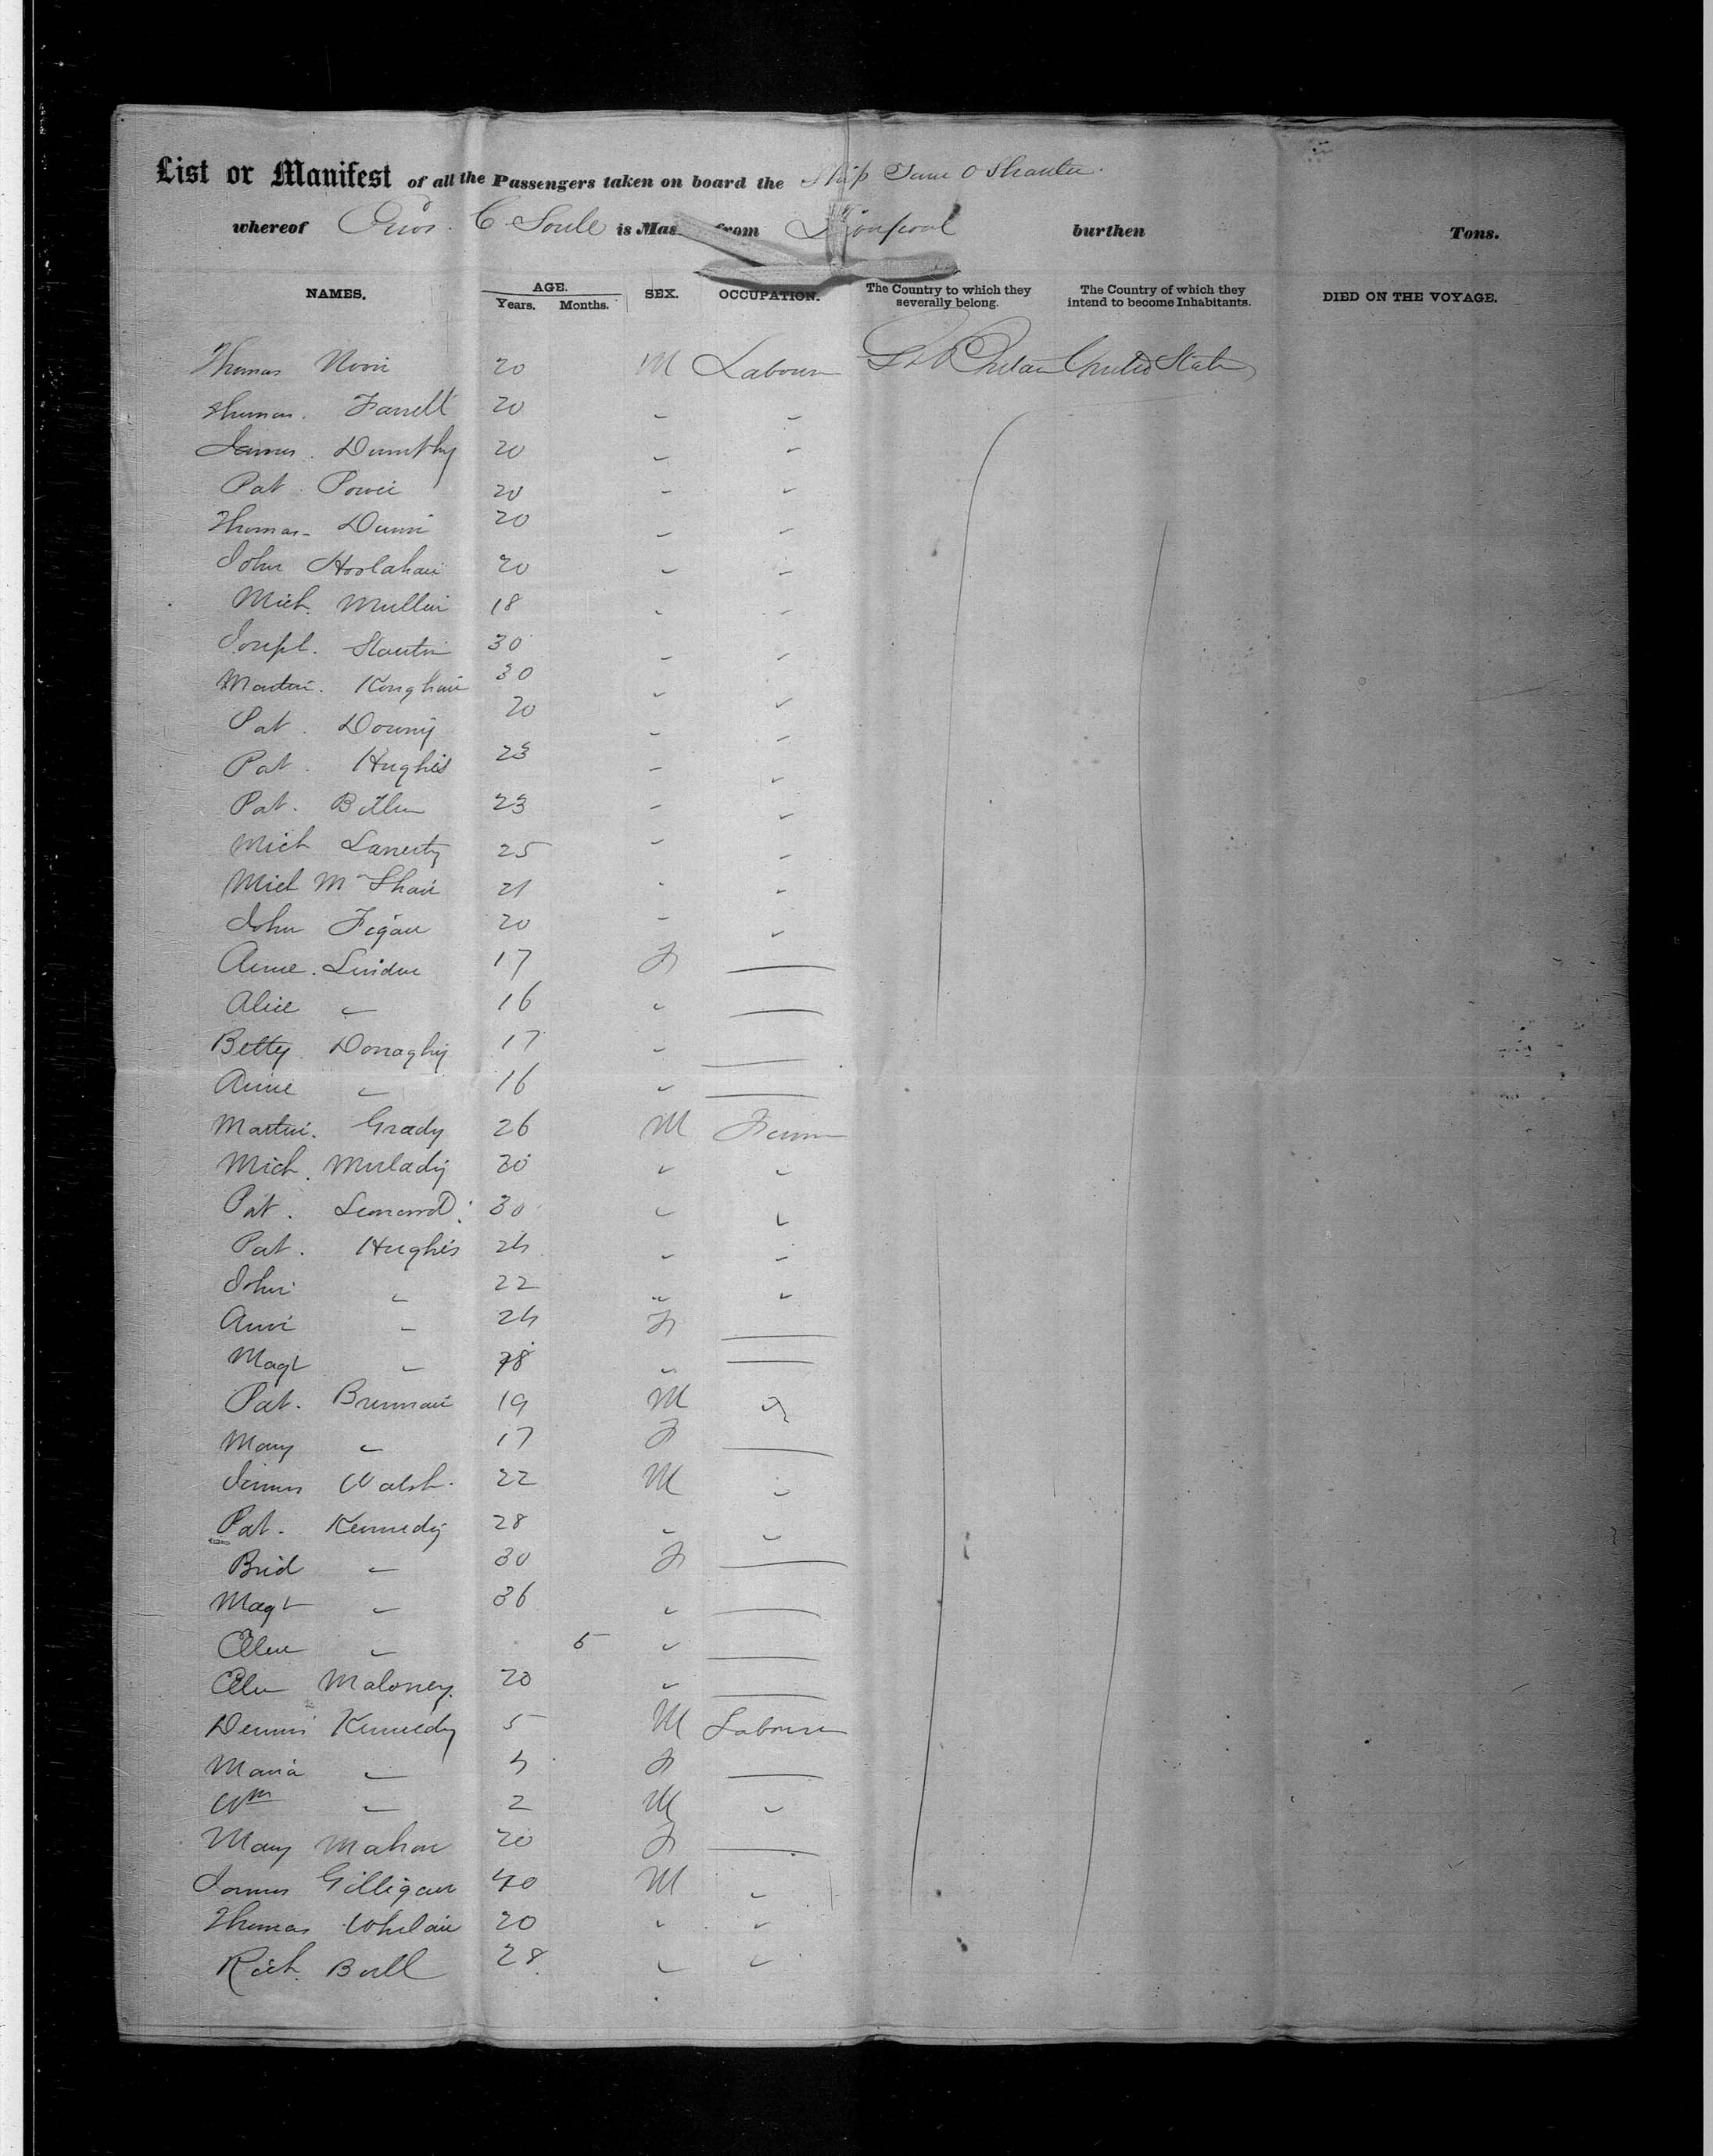 List or Manifest of all the Passengers taken on board the Ship Tam O Shanter.
whereof C. Soule is Mas from Liverpool burthen Tons.
NAMES. AGE. Years. Months. SEX. OCCUPATION. The Country to which they severally belong. The Country of which they intend to become Inhabitants. DIED ON THE VOYAGE.
Thomas 20 M Labourer Gt Britain United States
Thomas. Farrell 20 " "
James. 20 " "
Pat. Power 20 " "
Thomas Dunn 20 " "
John 20 " "
Mich. Mullin 18 " "
Joseph. 30 " "
Martin. 30 " "
Pat. Downy 20 " "
Pat. Hughes 23 " "
Pat. 23 " "
Mich 25 " "
Mich 21 " "
John Figan 20 " "
Anne. 17 F —
Alice " 16 " —
Betty Donaghy 17 " —
Anne " 16 " —
Martin. Grady 26 M Farmer
Mich. Mulady 30 " "
Pat. Lenard 30 " "
Pat. Hughes 24 " "
John " 22 " "
Ann " 24 F —
Magt " 18 " —
Pat. Brennan 19 M "
Mary " 17 F —
James Walsh. 22 M "
Pat. Kennedy 28 " "
Brid " 30 F —
Magt " 36 " —
Ellen " 5 " —
Ellen Maloney. 20 " —
Dennis Kennedy 5 M Labourer
Maria " 4 F —
Wm " 2 M "
Mary Mahon 20 F —
James Gilligan 40 M "
Thomas Whelan 20 " "
Rich. Bull 28 " "